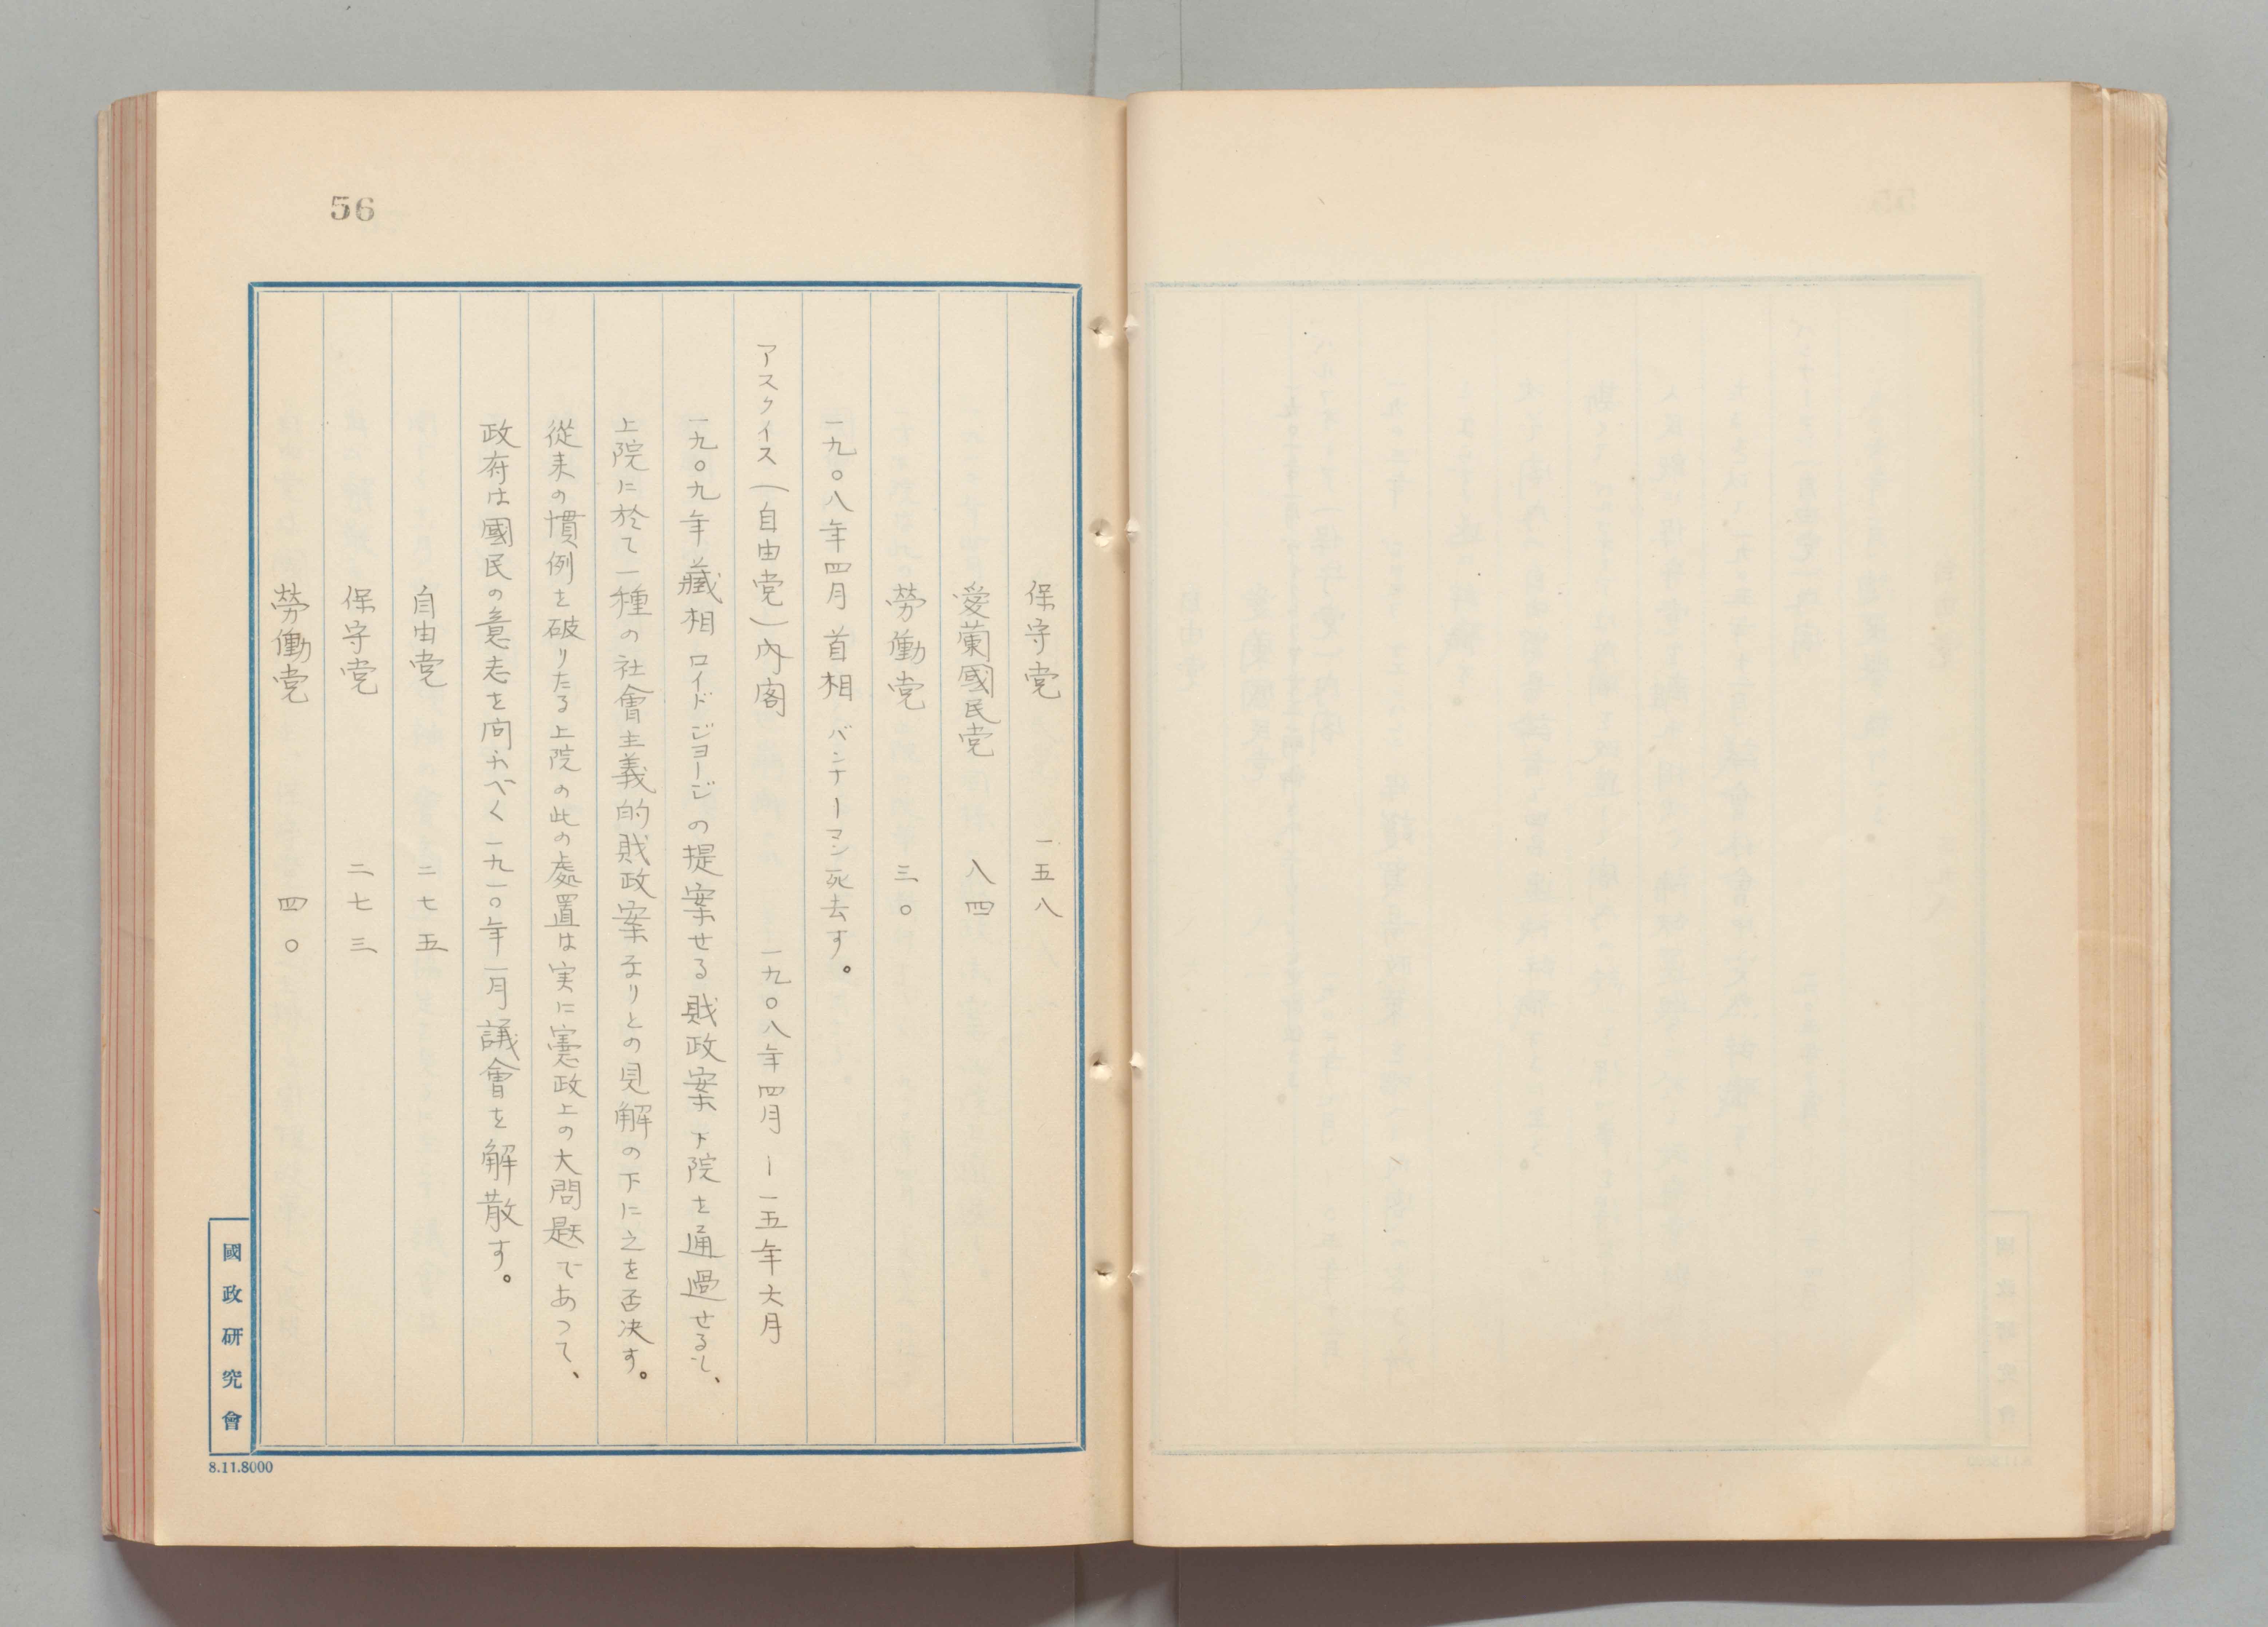 56
保守党 一五八
愛蘭國民党 八四
勞働党 三〇
一九〇八年四月首相バンナーマン死去す。
アスクイス(自由党)內閣 一九〇八年四月ー一五年六月
一九〇九年藏相ロイドジョージの提案せる財政案下院を通過せるも、
上院に於て一種の社會主義的財政案なりとの見解の下に之を否決す。
從来の慣例を破りたる上院の此の處置は実に憲政上の大問題であつて、
政府は國民の意志を問ふべく一九一〇年一月議會を解散す。
自由党 二七五
保守党 二七三
勞働党 四〇
國政研究會
8.11.8000